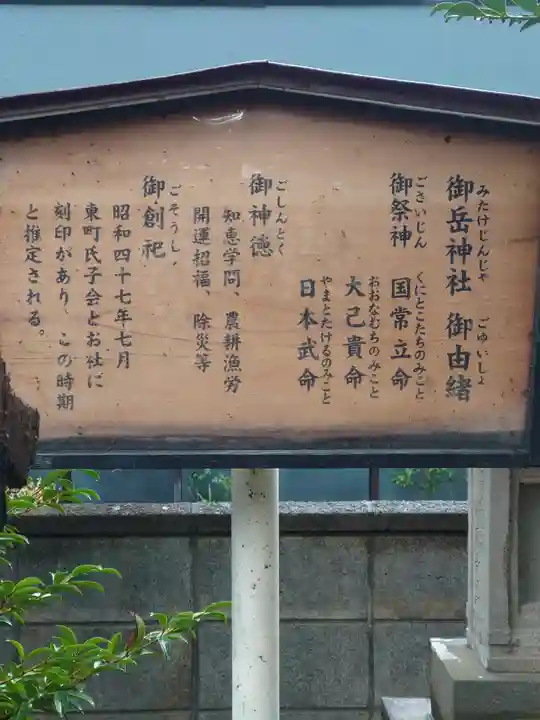 御岳神社 御由緒
みたけじんじゃ ごゆいしょ
御祭神 国常立命
ごさいじん くにとこたちのみこと
大己貴命
おおなむちのみこと
日本武命
やまとたけるのみこと
御神徳
ごしんとく
知恵学問、農耕漁労
開運招福、除災等
御創祀
ごそうし
昭和四十七年七月
東町氏子会とお社に
刻印があり、この時期
と推定される。